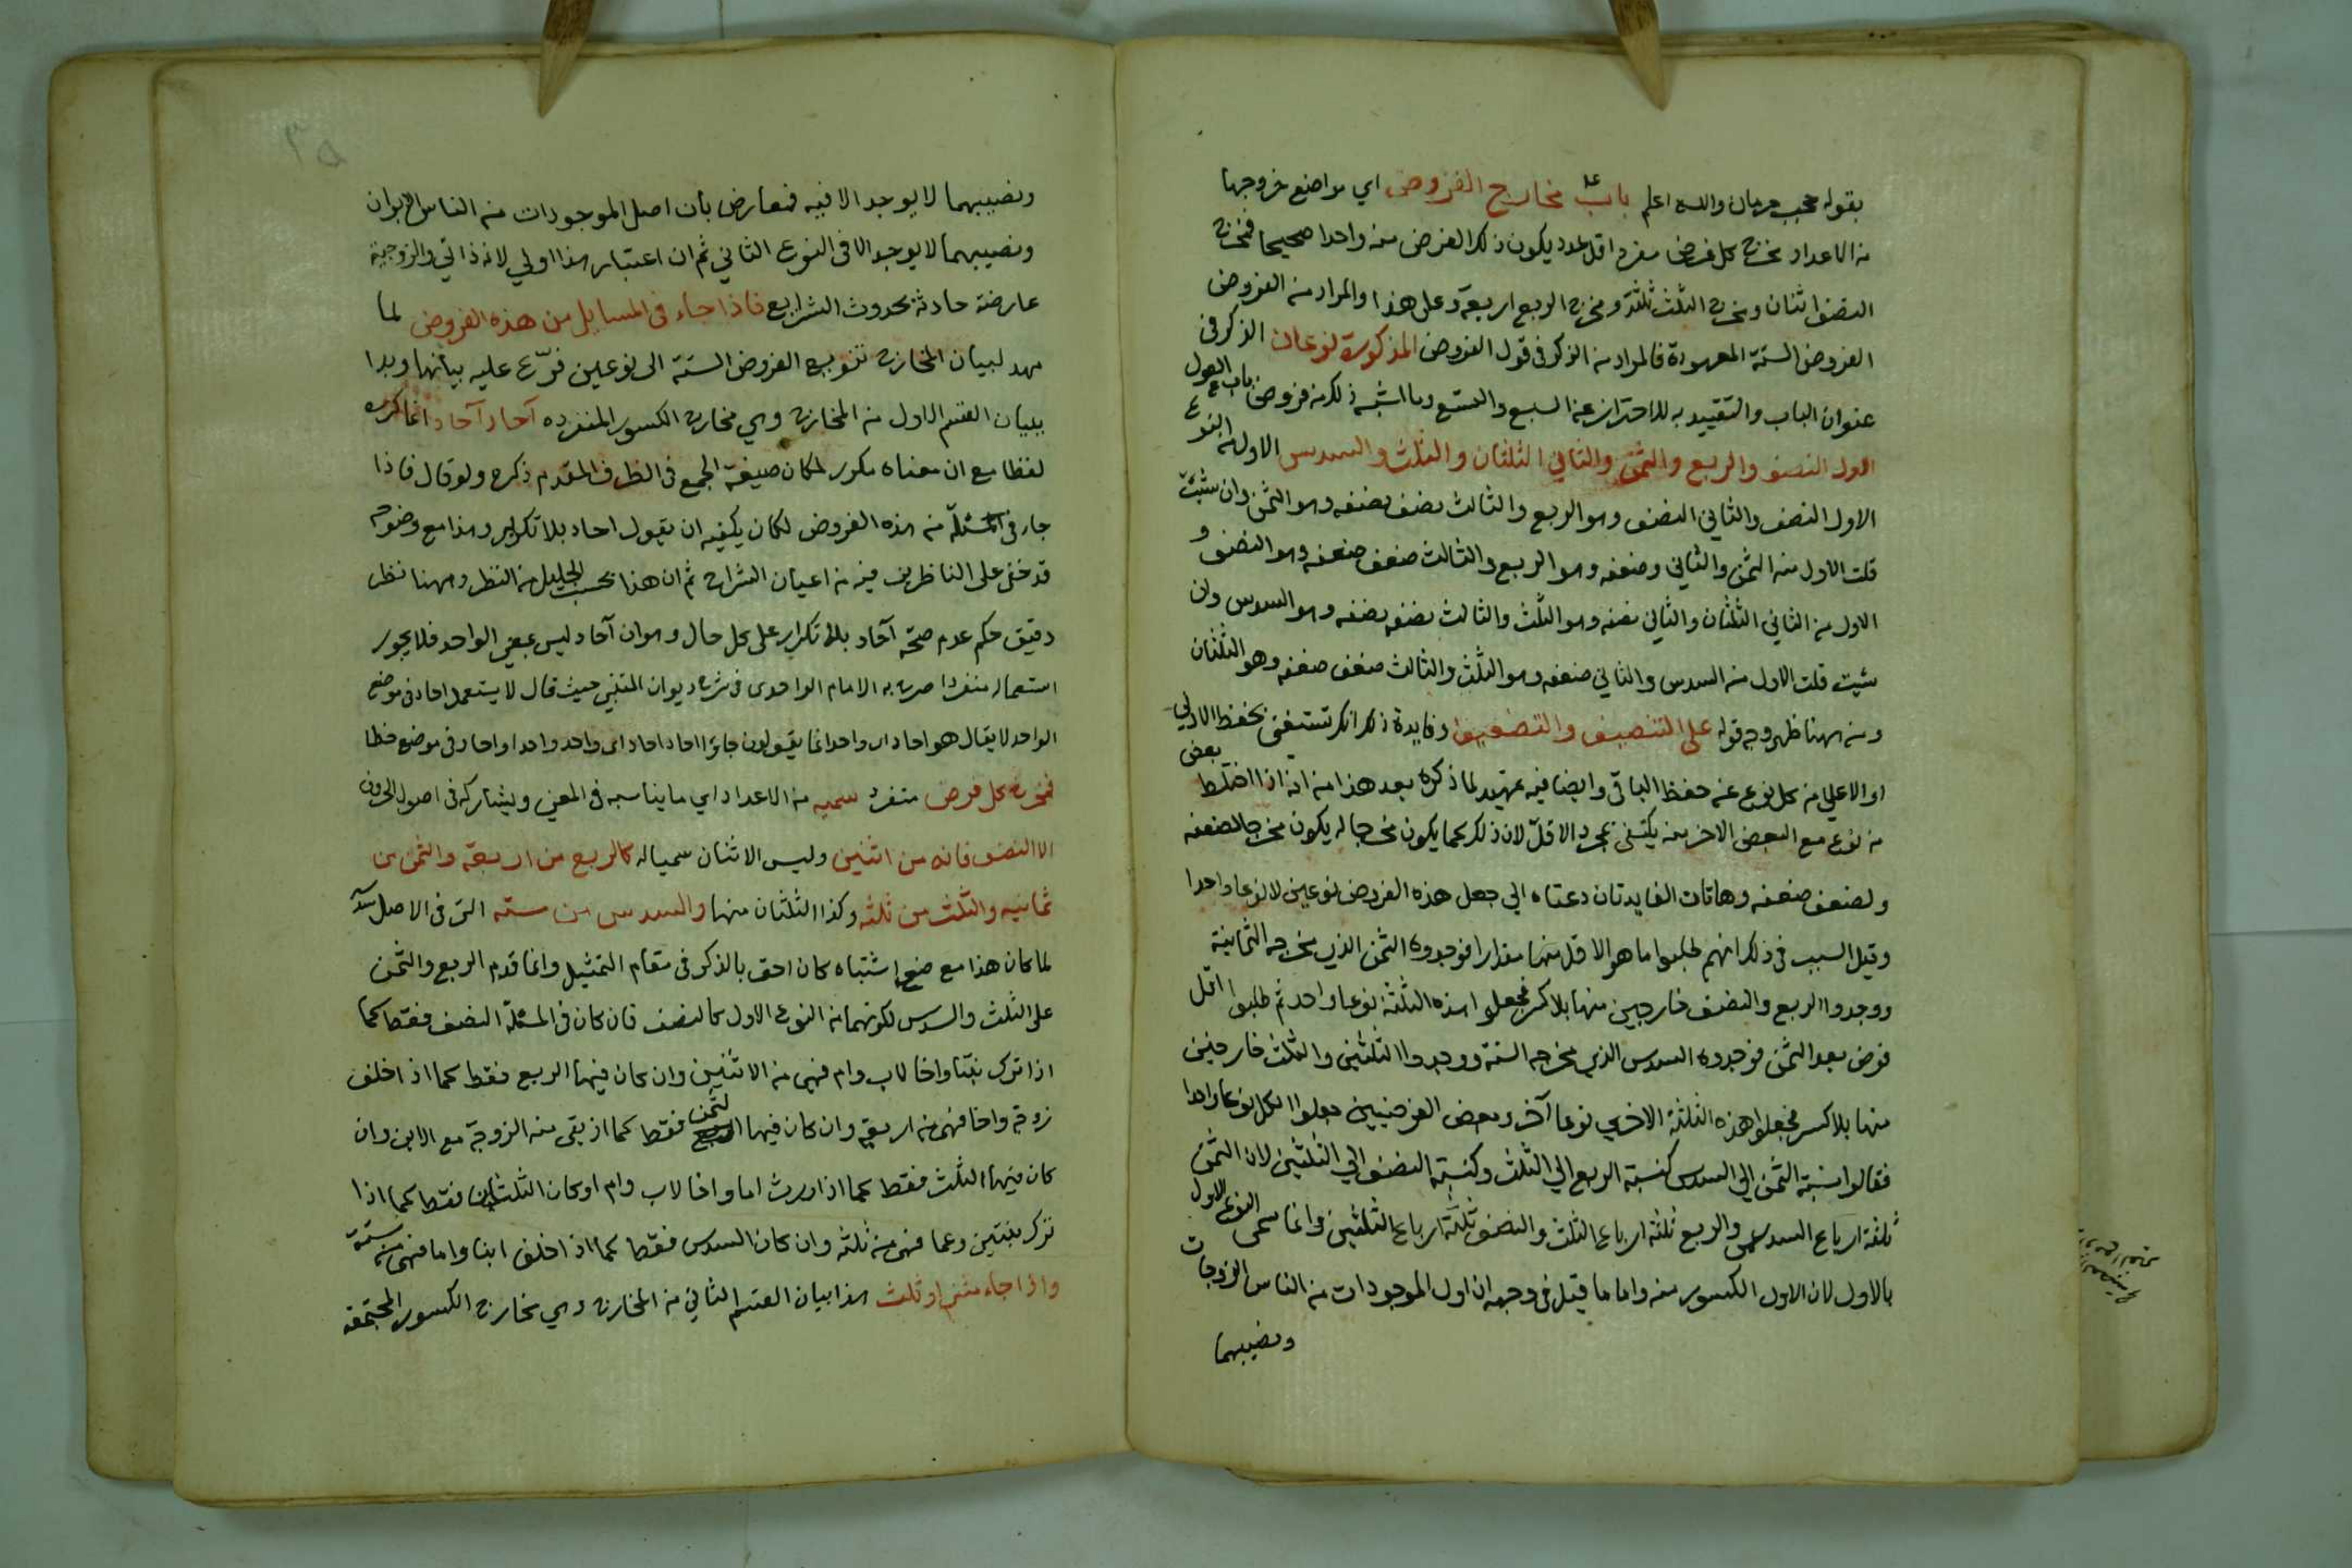 بقوله حجب حرمان والله اعلم باب مخارج الفروض اي مواضع خروجها
من الاعداد مخرج كل فرض مفرد اقل عدد يكون ذلك الفرض منه واحدا صحيحا فمخرج
النصف اثنان ومخرج الثلث ثلثة ومخرج الربع اربعة وعلى هذا والمراد من الفروض
الفروض الستة المعهودة فالمراد من الذكر في قول الفروض المذكورة نوعان الذكر في
عنوان الباب والتقييد به للاحتراز عن السبع والتسع وما اشبه ذلك من فروض باب العول
الاول النصف والربع والثمن والثاني الثلثان والثلث والسدس الاول من النوع
الاول النصف والثاني النصف وهو الربع والثالث نصف نصفه وهو الثمن وان شئت
قلت الاول منه الثمن والثاني وضعفه وهو الربع والثالث ضعف ضعفه وهو النصف و
الاول من الثاني الثلثان والثاني نصفه وهو الثلث والثالث نصف نصفه وهو السدس وان
شئت قلت الاول منه السدس والثاني ضعفه وهو الثلث والثالث ضعف ضعفه وهو الثلثان
ومن ههنا ظهر وجه قوله على التنصيف والتضعيف وفايدة ذلك انك تستغني بحفظ الادنى
او الاعلى من كل نوع عن حفظ الباقي وايضا فيه تمهيد لما ذكره بعد هذا من انه اذا اختلط بعض
من نوع مع البعض الاخر منه يكتفى بمخرج الاقل لان ذلك كما يكون مخرجا له يكون مخرجا لضعفه
ولضعف ضعفه وهاتان الفايدتان دعتاه الي جعل هذه الفروض نوعين لا نوعا واحدا
وقيل السبب في ذلك انهم طلبوا ما هو الاقل منها مقدارا فوجدوه الثمن الذي مخرجه الثمانية
ووجدوا الربع والنصف خارجين منها بلا كسر فجعلوا هذه الثلثة نوعا واحد ثم طلبوا اقل
فرض بعد الثمن فوجدوه السدس الذي مخرجه الستة ووجدوا الثلثين والثلث خارجين
منها بلا كسر فجعلوا هذه الثلثة الاخرى نوعا آخر وبعض الفرضيين جعلوا الكل نوعا واحدا
فقالوا نسبة الثمن الي السدس كنسبة الربع الي الثلث وكنسبة النصف الي الثلثين لان الثمن
ثلثة ارباع السدس والربع ثلثة ارباع الثلث والنصف ثلثة ارباع الثلثين وانما سمى النوع الاول
بالاول لان الاول الكسور منه واما ما قيل في وجهه ان اول الموجودات من الناس الزوجان
ونصيبهما
ونصيبهما لا يوجد الا فيه فمعارض بان اصل الموجودات من الناس الابوان
ونصيبهما لا يوجد الا في النوع الثاني ثم ان اعتبار هذا اولي لانه ذاتي والزوجية
عارضة حادثة بحدوث الشرايع فاذا جاء في المسايل من هذه الفروض لما
مهد لبيان المخارج تنويع الفروض الستة الى نوعين فرّع عليه بيانها وبدا
ببيان القسم الاول من المخارج وهي مخارج الكسور المنفرده آحاد آحاد انما كرره
لفظا مع ان معناه مكرر لمكان صيغة الجمع في الظرف المقدم ذكره ولو قال فاذا
جاء في المسئلة من هذه الفروض لكان يكفيه ان يقول احاد بلا تكرار وهذا مع وضوحه
قد خفى على الناظرين فيه من اعيان الشراح ثم ان هذا بحسب الجليل من النظر وههنا نظر
دقيق حكم عدم صحة آحاد بلا تكرار على كل حال وهو ان آحاد ليس بمعنى الواحد فلا يجوز
استعماله منفردا صرح به الامام الواحدى في شرح ديوان المتنبي حيث قال لا يستعمل احاد في موضع
الواحد لا يقال هو احاد اى واحد انما يقولون جاؤا احاد احاد اى واحد واحدا واحاد في موضع خطا
فمخرج كل فرض منفرد سميه من الاعداد اي ما يناسبه في المعنى ويشاركه في اصول الحروف
الا النصف فانه من اثنين وليس الاثنان سميا له كالربع من اربعة والثمن من
ثمانيه والثلث من ثلثه وكذا الثلثان منها والسدس من ستة التى في الاصل سدسة
لما كان هذا مع اشتباه كان احق بالذكر في مقام التمثيل وانما قدم الربع والثمن
على الثلث والسدس لكونهما من النوع الاول كالنصف فان كان في المسئلة النصف فقط كما
اذا ترك بنتا واخا لاب وام فهي من الاثنين وان كان فيها الربع فقط كما اذ اخلف
زوجة واخا فهى من اربعة وان كان فيها الثمن فقط كما اذ بقى منه الزوجة مع الابن وان
كان فيها الثلث فقط كما اذا ورث اما واخا لاب وام او كان الثلثان فقط كما اذا
ترك بنتين وعما فهى من ثلثه وان كان السدس فقط كما اذ اخلف ابنا واما فهى من ستة
واذا جاء مثنى او ثلث هذا بيان القسم الثاني من المخارج وهي مخارج الكسور المجتمعة